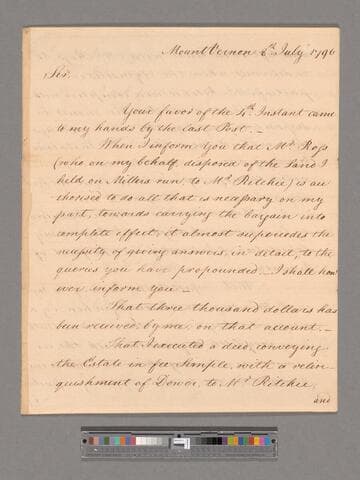 Mount Vernon 6th July 1796
Sir,
Your favor of the 4th Instant came
to my hands by the last Post. –
When I inform you that Mr. Ross
(who on my behalf, disposed of the Land I
held on Millers run, to Mr. Ritchie) is au
thorised to do all that is necessary on my
part, towards carrying the bargain into
complete effect, it almost supercedes the
necessity of giving answers, in detail, to the
queries you have propounded. – I shall how
ever inform you –
That three thousand dollars has
been received by me, on that account. –
That I executed a deed, conveying
the Estate in fee Simple, with a relin
quishment of Dower, to Mr. Ritchie,
and